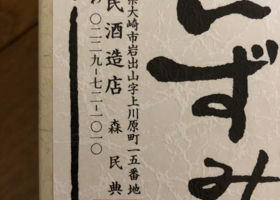 ずみ
県大崎市岩出山字上川原町一五番地
民酒造店 森民典
〇二二九-七二-一〇一〇